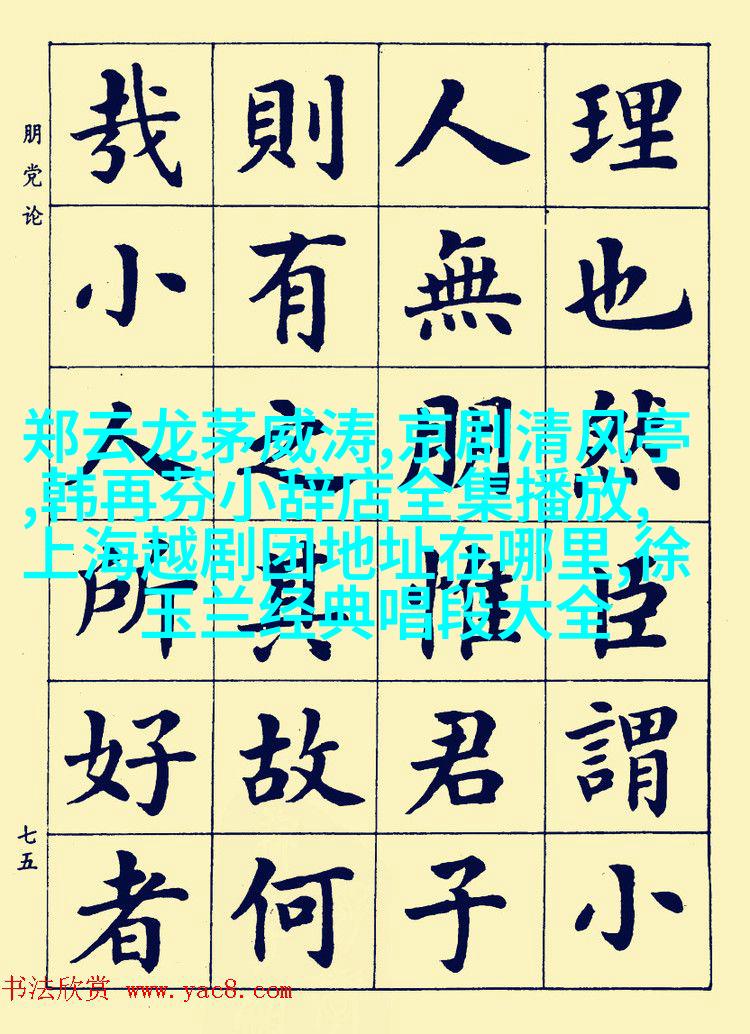 朋党论
理也然臣謂小
人無朋惟君子
則有之其故何
哉小人所好者
七五
郑云龙茅威涛,京剧清风亭
,韩再芬小辞店全集播放,
上海越剧团地址在哪里,徐
玉兰经典唱段大全
书法欣赏 www.yac8.com